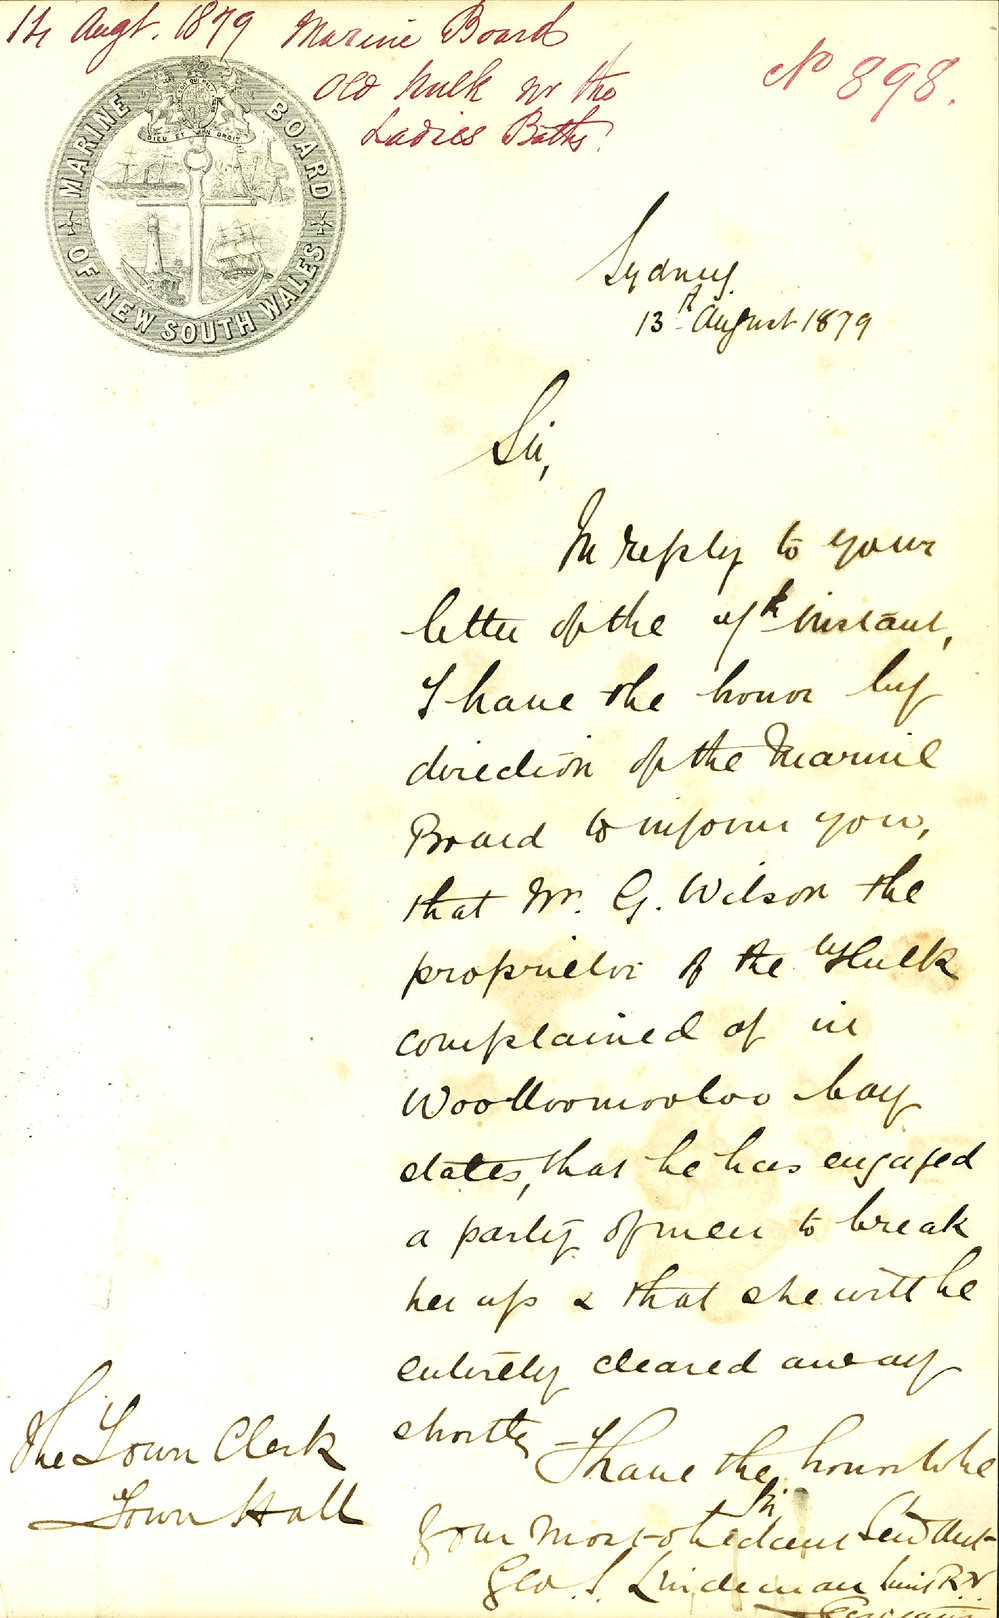 14 Augt. 1879 Marine Board
Old Hulk nr the
Ladies Baths.
No 898.
MARINE BOARD
OF NEW SOUTH WALES
DIEU ET MON DROIT
Sydney
13th August 1879
Sir,
In reply to your
letter of the 7th instant,
I have the honor by
direction of the Marine
Board to inform you,
that Mr. G. Wilson the
proprietor of the Hulk
complained of in
Woolloomooloo bay
states, that he has engaged
a party of men to break
her up & that she will be
entirely cleared away
shortly – I have the honor to be
Sir
Your most obedient Servant
Geo. S. Lindeman Lieut R.N.
Secretary
The Town Clerk
Town Hall